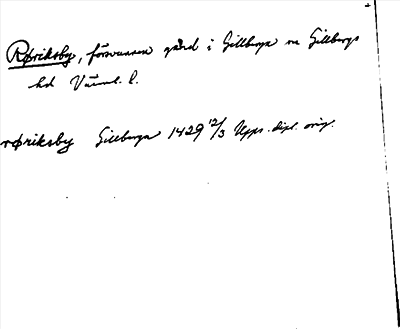 Røriksby, försvunnen gård i Gillberga sn Gillbergs
hd Värml. l.
røriksby Gillberga 1429 12/3 Upps. dipl. orig.